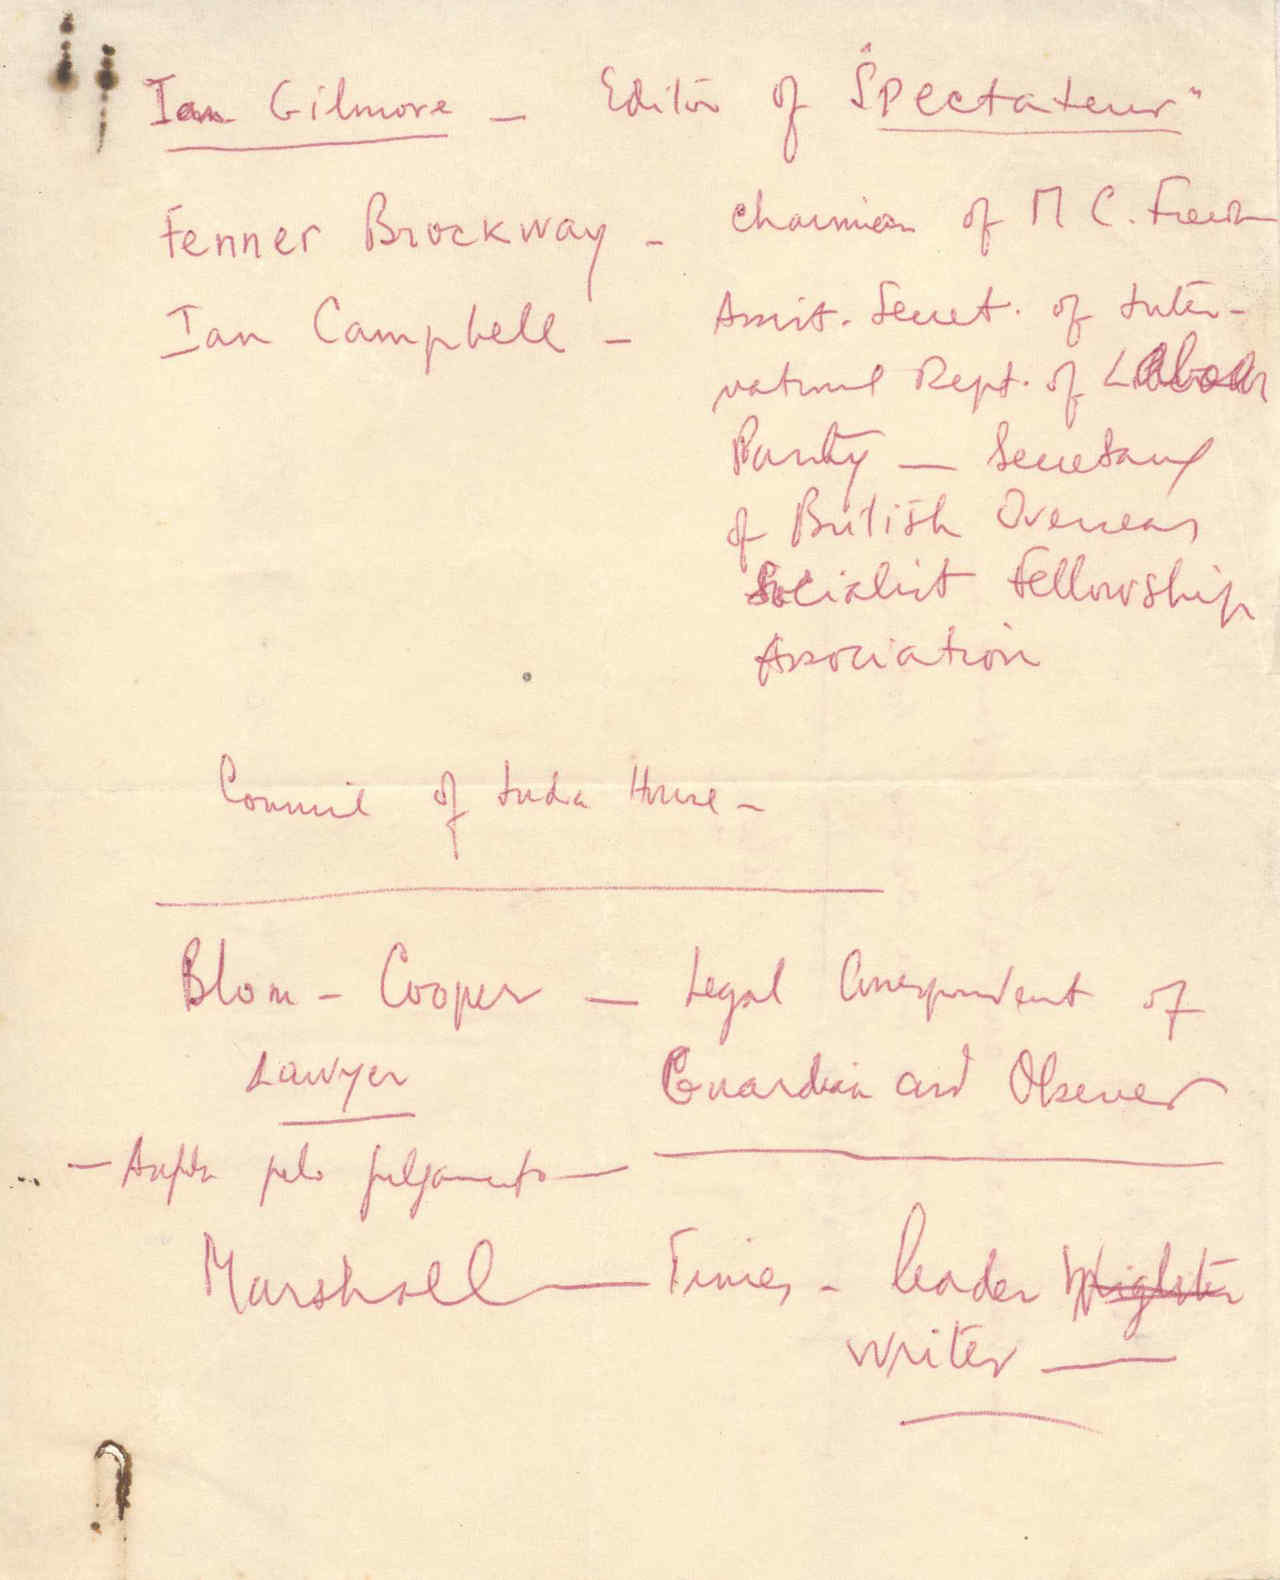 Ian Gilmore — Editor of "Spectateur"
Fenner Brockway — Chairman of M C. Freedom
Ian Campbell — Assist. Secret. of Inter-
national Dept. of Labour
Party — Secretary
of British Overseas
Socialist Fellowship
Association
Council of India House —
Blom - Cooper — Legal Correspondent of
Lawyer Guardian and Observer
— pelo julgamento —
Marshall — Times - leader
writer —